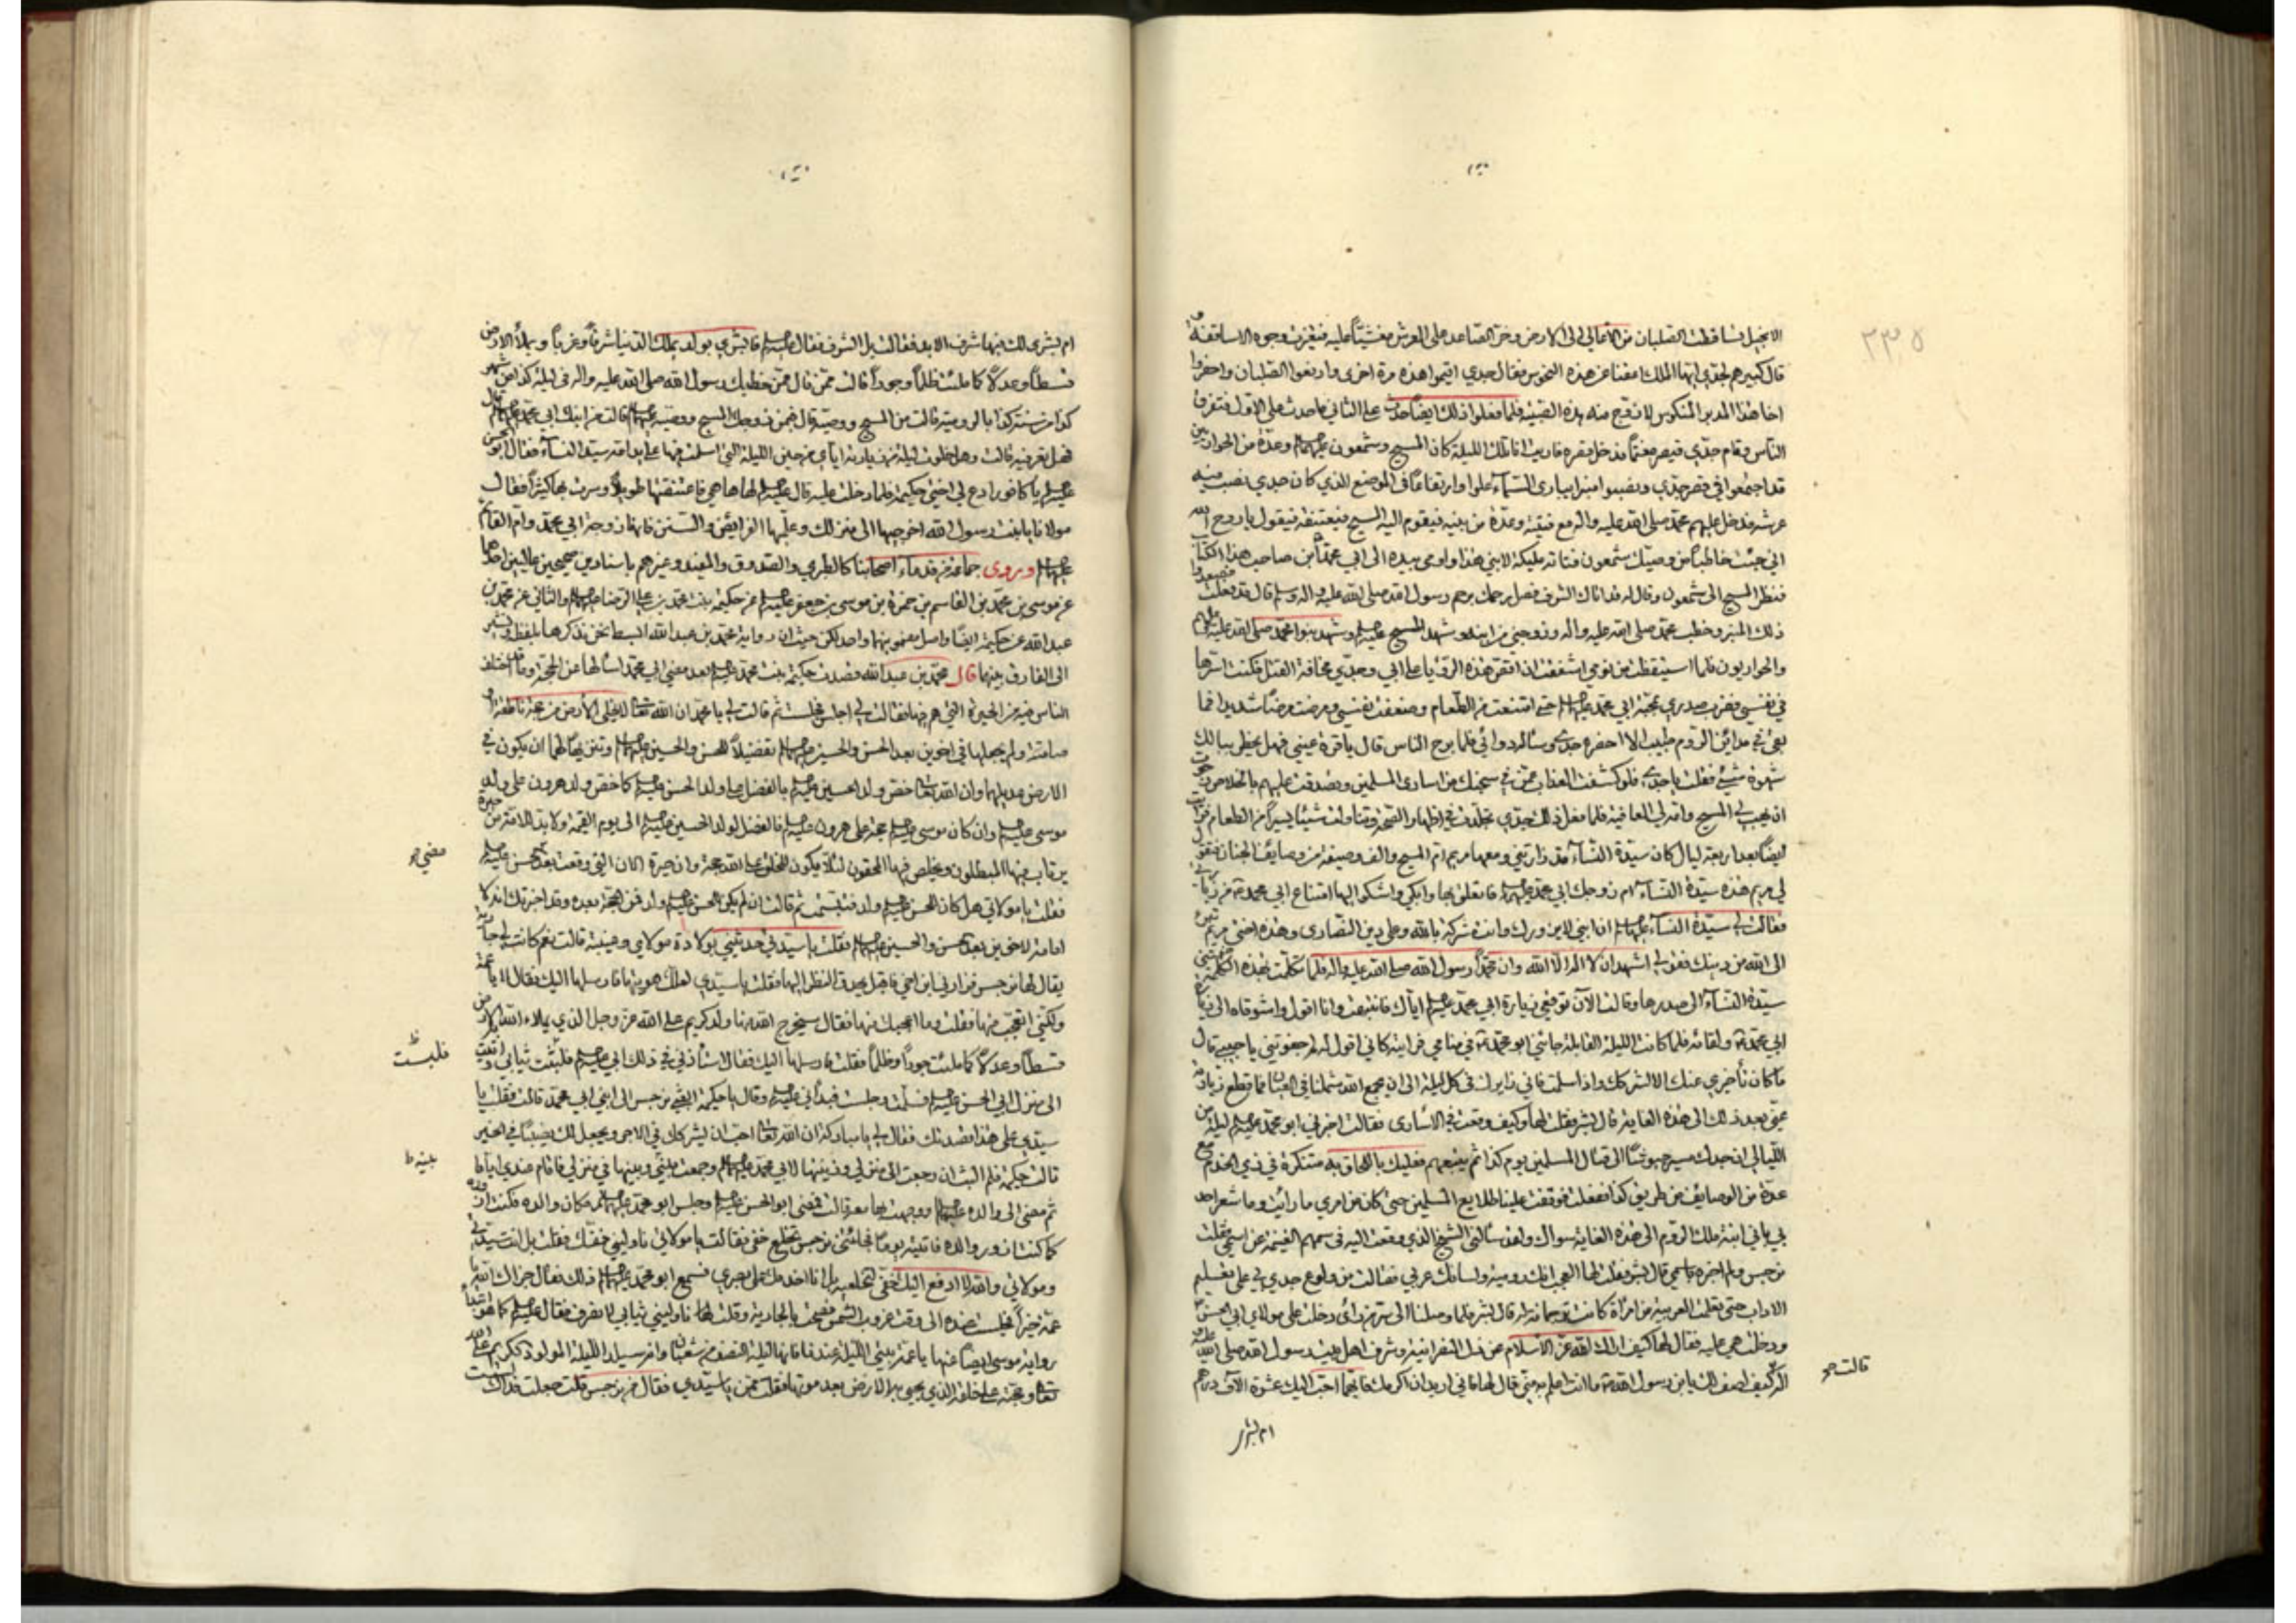 ٢٣٥
الانجيل تساقطت الصلبان من الأعالي الى الارض وخر الصاعد على العرش مغشيّاً عليه فتغيرت وجوه الاساقفة
قال كبيرهم لجدي ايها الملك اعفنا عن هذه النحوس فقال جدي اقيموا هذه مرة اخرى وارفعوا الصلبان واحضروا
اخا هذا المدبر المنكوس لا تزوج منه هذه الصبية فلما فعلوا ذلك ايضاً حدث على الثاني ما حدث على الاول فتفرق
الناس وقام جدّي قيصر مغتمّاً فدخل قصره فاريت انا تلك الليلة كان المسيح وشمعون عليهما وعدّة من الحواريين
قد اجتمعوا في قصر جدّي ونصبوا منبرا يباري السّماء علوا وارتفاعا في الموضع الذي كان جدي نصب فيه
عرشه فدخل عليهم محمد صلى الله عليه واله مع فتية وعدّة من بنيه فيقوم اليه المسيح فيعتنقه فيقول يا روح الله
اني جئت خاطباً من وصيك شمعون فتاته مليكة لابني هذا واومى بيده الى ابي محمد ابن صاحب هذا الكتاب
فنظر المسيح الى شمعون وقال له قد اتاك الشرف فصل رحمك برحم رسول الله صلى الله عليه واله وسلم قال قد فعلت فصعدوا
ذلك المنبر وخطب محمد صلى الله عليه واله وزوجني من ابنه وشهد المسيح عليه السلم وشهد بنو محمد صلى الله عليه
والحواريون فلما استيقظت من نومي اشفقت ان اقص هذه الرؤيا على ابي وجدّي مخافة القتل فكنت اسرّها
في نفسي وضرب صدري بمحبة ابي محمد حتى امتنعت من الطعام وضعفت نفسي ومرضت مرضا شديدا فما
بقي في مدائن الروم طبيب الا احضره جدي وسأله دوائي فلما برح الناس قال يا قرة عيني فهل يخطر ببالك
شهوة شيئ فقلت يا جدي فلو كشفت العذاب عمّن في سجنك من اسارى المسلمين وتصدقت عليهم بالخلاص رجوت
ان يجيب لي المسيح وامه لي العافية فلما فعل ذلك جدي تجلّدت في اظهار الصّحة وتناولت شيئا يسيراً من الطعام فرايت
ايضاً بعد اربعة ليال كان سيّدة النّساء قد زارتني ومعها مريم ام المسيح والف وصيفة من وصايف الجنان فتقول
لي مريم هذه سيدة النساء ام زوجك ابي محمد فاتعلق بها وابكي واشكوا اليها امتناع ابي محمد من زيارتي
فقالت لي سيّدة النساء ان ابني لا يزورك وانت مشركة بالله وعلى دين النصارى وهذه اختي مريم تبرء
الى الله من دينك فقولي اشهد ان لا اله الا الله وان محمداً رسول الله صلى الله عليه واله فلما تكلمت بهذه الكلمة ضمتني
سيّدة النساء الى صدرها وقالت الآن توقعي زيارة ابي محمد اياك فانتبهت وانا اقول واشوقاه الى زيارة
ابي محمد ولقائه فلما كانت الليلة القابلة جائني ابو محمد في منامي فرايته كاني اقول له لم جفوتني يا حبيبي قال
ما كان تأخيري عنك الا لشركك واذ اسلمت فاني زايرك في كل ليلة الى ان يجمع الله شملنا في العيان فما قطع زيارته
عنّي بعد ذلك الى هذه الغاية قال بشر فقلت لها وكيف وقعت في الاسارى فقالت اخبرني ابو محمد ليلة من
الليالي ان جدك سيسرح جيوشا الى قتال المسلمين يوم كذا ثم يتبعهم فعليك باللحاق به متنكرة في زي الخدم مع
عدّة من الوصايف من طريق كذا ففعلت فوقفت علينا طلايع المسلمين حتى كان من امري ما رأيت وما شعر احد
بي باني ابنة ملك الروم الى هذه الغاية سواك ولقد سألني الشيخ الذي وقعت اليه في سهم الغنيمة عن اسمي فقلت
نرجس ولم اخبره باسمي قال بشر فقلت لها العجب انك رومية ولسانك عربي فقالت من ولوع جدي بي على تعليم
الاداب حتى تعلمت العربية من امرأة كانت ترجمانة له قال بشر فلما وصلنا الى سرّ من رأى دخلت على مولاي ابي الحسن
ودخلت هي عليه فقال لها كيف اراك الله عزّ الاسلام عن ذل النصرانية وشرف اهل بيت رسول الله صلى الله عليه
اله كيف اصف لك يابن رسول الله ما انت اعلم به منّي قال لها فاني اريد ان اكرمك فايهما احب اليك عشرة الآف درهم
قالت
ام بشرى
ام بشرى لك فيها شرف الابد فقالت بل الشرف فقال فابشري بولد يملك الدنيا شرقاً وغرباً ويملأ الارض
قسطاً وعدلاً كما ملئت ظلماً وجوراً قالت ممّن قال ممّن خطبك رسول الله صلى الله عليه واله في ليلة كذا من شهر
كذا من سنة كذا بالرومية قالت من المسيح ووصيّه قال فممن زوجك المسيح ووصيه قالت من ابنك ابي محمد قال
فهل تعرفينه قالت وهل خلوت ليلة من زيارته اياي من حين الليلة التي اسلمت فيها على يد امه سيدة النساء فقال ابو الحسن
يا كافور ادع لي اختي حكيمة فلما دخلت عليه قال لها ها هي فاعتنقتها طويلاً وسرت بها كثيراً فقال
مولانا يا بنت رسول الله اخرجيها الى منزلك وعلّميها الفرائض والسّنن فانها زوجة ابي محمد وام القائم
ويروى جماعة من قدماء اصحابنا كالطبري والصدوق والمفيد وغيرهم باسنادين صحيحين عاليين احدهما
عن موسى بن محمد بن القاسم بن حمزة بن موسى بن جعفر عن حكيمة بنت محمد بن علي الرضا والثاني عن محمد بن
عبدالله عن حكيمة ايضاً واصل مضمونهما واحد لكن حيث ان رواية محمد بن عبد الله ابسط نحن نذكرها بلفظه ونشير
الى الفارق بينهما قال محمد بن عبد الله قصدت حكيمة بنت محمد بعد مضي ابي محمد اسألها عن الحجة وما قد اختلف
الناس فيه من الحيرة التي هم فيها فقالت لي اجلس فجلست ثم قالت لي يا محمد ان الله تعالى لا يخلي الأرض من حجة ناطقة او
صامتة ولم يجعلها في اخوين بعد الحسن والحسين تفضيلاً للحسن والحسين وتنزيهاً لهما ان يكون في
الارض عديلهما وان الله تعالى خص ولد الحسين بالفضل على ولد الحسن كما خص ولد هرون على ولد
موسى وان كان موسى حجة على هرون فالفضل لولد الحسين الى يوم القيمة ولا بد للامة من حيرة
يرتاب فيها المبطلون ويخلص فيها المحقون لئلا يكون للخلق على الله حجة وان حيرة الان التي وقعت بعد الحسن
مضي
فقلت يا مولاتي هل كان للحسن ولد فتبسّمت ثم قالت ان لم يكن للحسن ولد فمن الحجة بعده وقد اخبرتك انه لا
امامة لاخوين بعد الحسن والحسين فقلت يا سيدتي حدثيني بولادة مولاي وغيبته قالت نعم كانت لي جارية
يقال لها نرجس فزارني ابن اخي فاقبل يحدق النظر اليها فقلت يا سيدي لعلك هويتها فارسلها اليك فقال لا يا عمة
ولكني اتعجب منها فقلت وما اعجبك منها فقال سيخرج الله منها ولد كريم على الله عز وجل الذي يملاء الله الارض
قسطا وعدلا كما ملئت جوراً وظلماً فقلت فارسلها اليك فقال استأذني في ذلك ابي فلبثت ثيابي واتيت
فلبست
الى منزل ابي الحسن فسلّمت وجلست فبدأني وقال يا حكيمة ابعثي نرجس الى ابني ابي محمد قالت فقلت يا
سيدي على هذا قصدتك فقال لي يا مباركة ان الله تعالى احب ان يشركك في الاجر ويجعل لك نصيبا في الخير
قالت حكيمة فلم البث ان رجعت الى منزلي وزينتها لابي محمد وجمعت بيني وبينها في منزلي فاقام عندي اياماً
بينه
ثم مضى الى والده ووجهت بها معه قالت فمضى ابو الحسن وجلس ابو محمد مكان والده فكنت ازوره
كما كنت ازور والده فاتيته يوماً فجائتني نرجس تخلع خفي فقالت يا مولاتي ناوليني خفك فقلت بل انت سيدتي
ومولاتي والله لا ادفع اليك خفي لتخلعيه بل انا اخدمك على بصري فسمع ابو محمد ذلك فقال جزاك الله يا
عمة خيراً فجلست عنده الى وقت غروب الشمس فصحت بالجارية وقلت لها ناوليني ثيابي لانصرف فقال
رواية موسى ايضا عنها يا عمة بيتي الليلة عندنا فانها ليلة النصف من شعبان وانه سيلد الليلة المولود الكريم على الله
تعالى وحجته على خلقه الذي يحيي به الارض بعد موتها فقلت ممن يا سيّدي فقال من نرجس قلت جعلت فداك